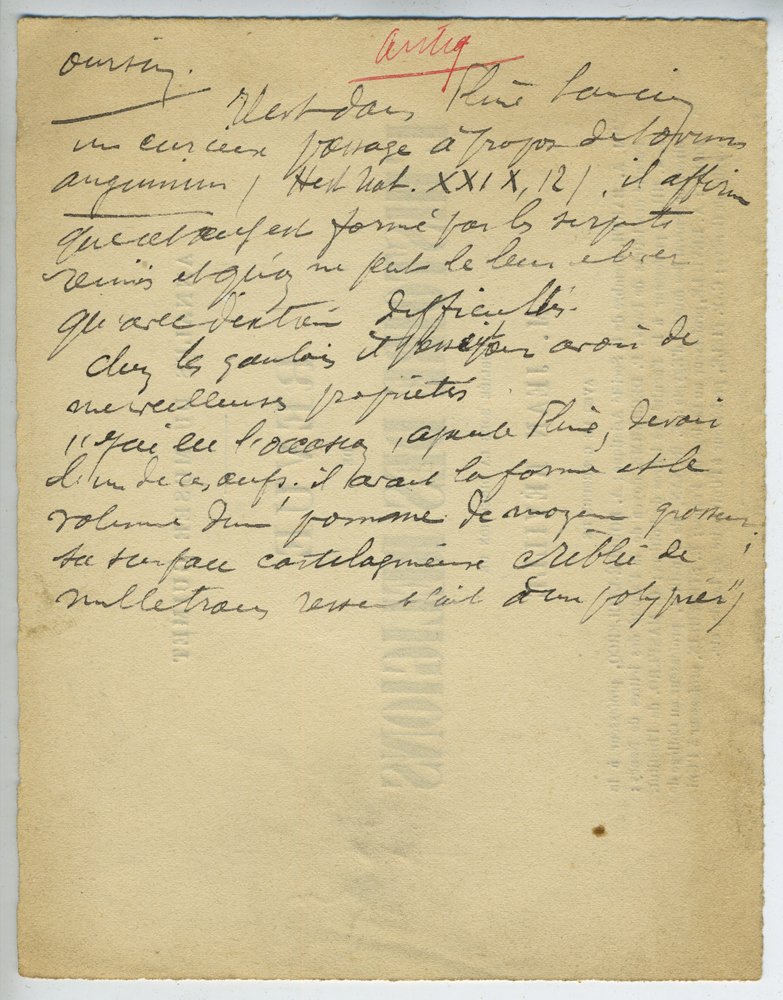 oursin.
antiq
Il est dans Pline l'ancien
un curieux passage à propos de l'ovum
anguinum (Hist Nat. XXIX, 12), il affirme
que cet œuf est formé par les serpents
réunis et qu'on ne peut le leur enlever
qu'avec d'extrêm difficultés.
Chez les gaulois il passait pour avoir de
merveilleuses propriétés
"J'ai eu l'occasion, ajoute Pline, de voir
l'un de ces œufs. il avait la forme et le
volume d'une pomme de moyen grosseur;
sa surface cartilagineuse criblée de
mille trous ressemblait à un polypier")
RELIGIONS